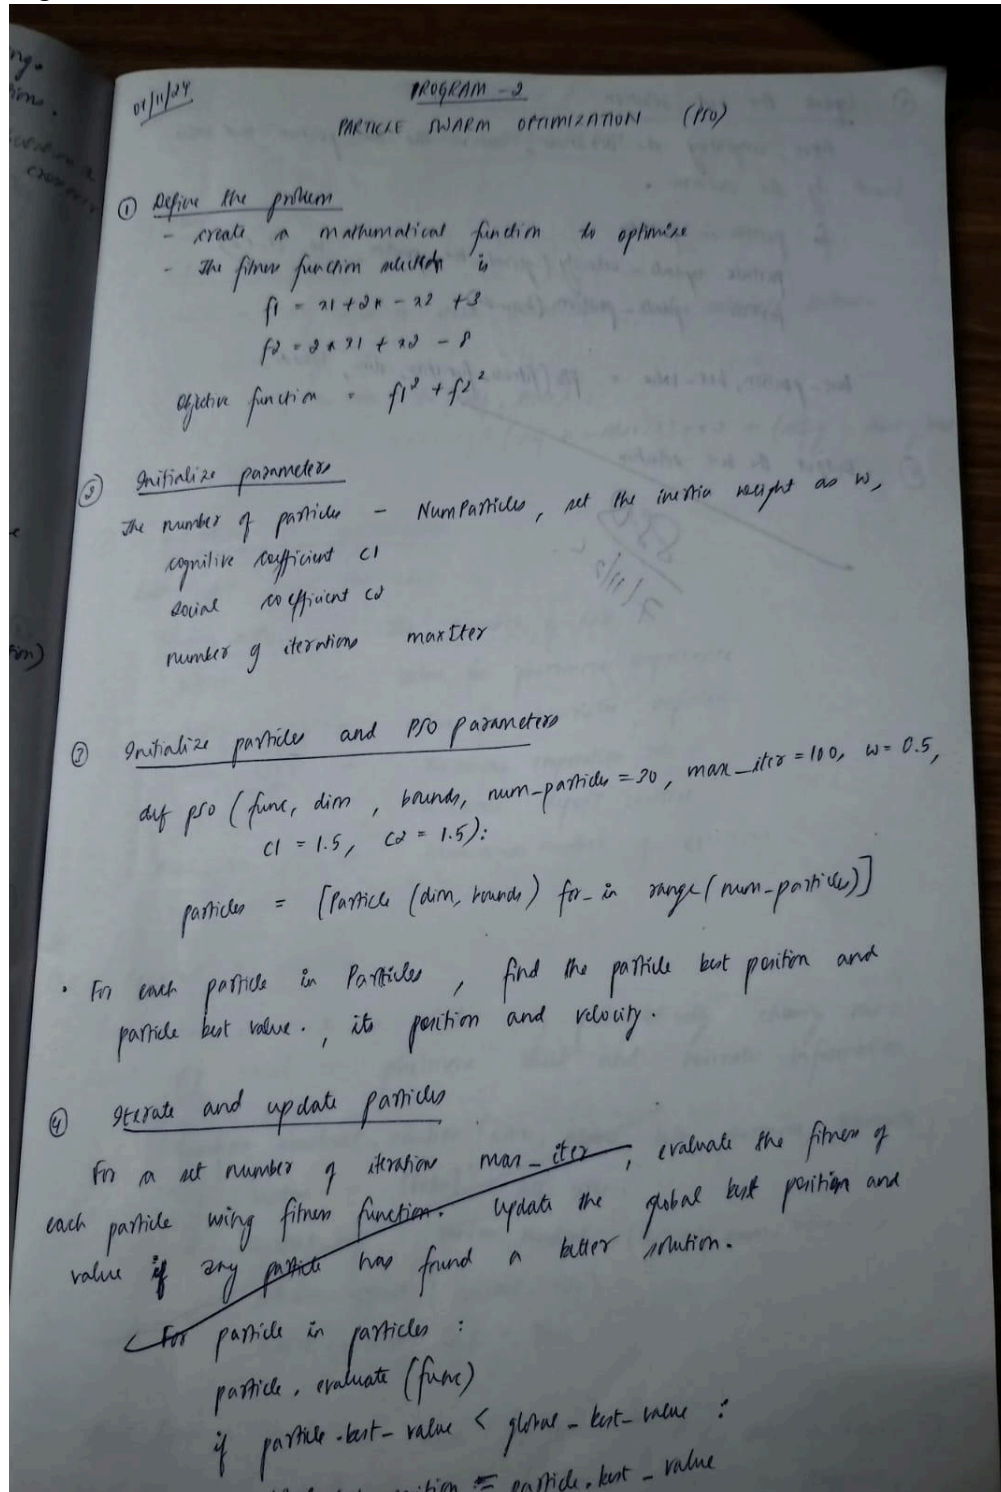 01/11/24
PROGRAM - 2
PARTICLE SWARM OPTIMIZATION (PSO)
① Define the problem
- create a mathematical function to optimize
- The fitness function selected is
f1 = x1 + 2x - x2 + 3
f2 = 2 * x1 + x2 - 8
Objective function = f1² + f2²
② Initialize parameters
The number of particles - NumParticles, set the inertia weight as w,
cognitive coefficient c1
social coefficient c2
number of iterations maxIter
③ Initialize particles and PSO parameters
def pso (func, dim, bounds, num_particles = 30, max_iter = 100, w = 0.5,
c1 = 1.5, c2 = 1.5):
particles = [Particle (dim, bounds) for _ in range (num_particles)]
• For each particle in Particles, find the particle best position and
particle best value., its position and velocity.
④ Iterate and update particles
For a set number of iteration max_iter, evaluate the fitness of
each particle using fitness function. Update the global best position and
value if any particle has found a better solution.
For particle in particles :
particle. evaluate (func)
if particle.best_value < global_best_value :
= particle.best_value